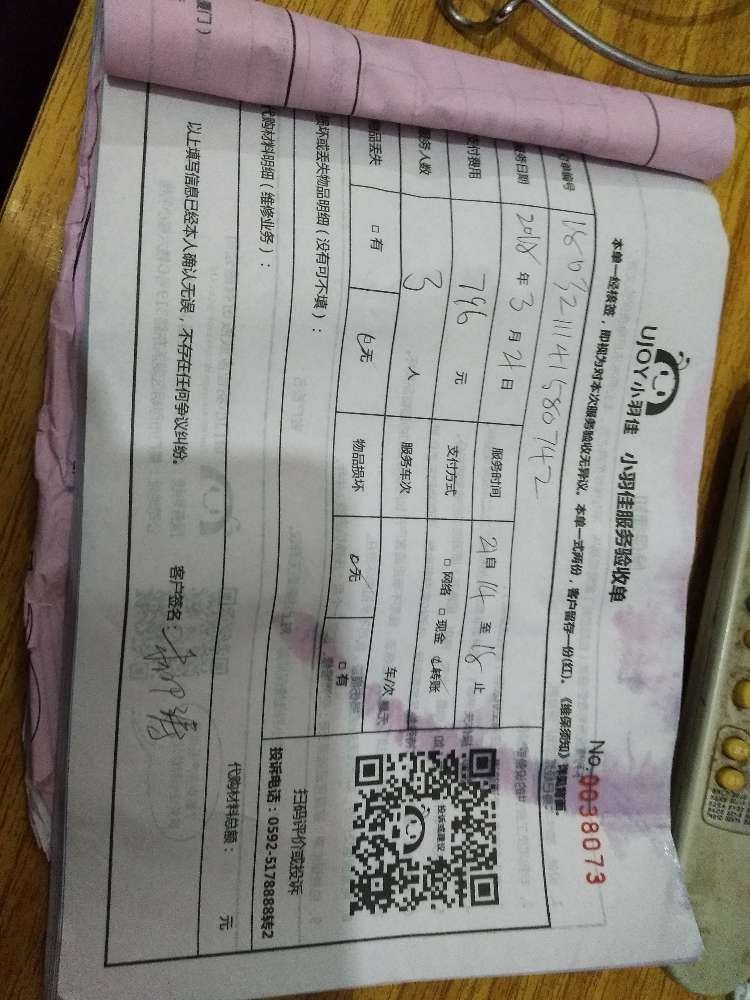 厦门）
UJOY小羽佳 小羽佳服务验收单
No.0038073
本单一经接签，即视为对本次服务验收无异议。本单一式两份，客户留存一份(红)。《维保须知》详见背面。
编号 1803211141580742
服务日期 2018 年 3 月 21 日 服务时间 21 自 14 至 18 止
支付费用 796 元 支付方式 □ 网络 □ 现金 ☑ 转账
服务人数 3 人 服务车次 车/次
物品丢失 □ 有 ☑ 无 物品损坏 ☑ 无 □ 有
损坏或丢失物品明细（没有可不填）：
代购材料明细（维修业务）：
代购材料总额： 元
以上填写信息已经本人确认无误，不存在任何争议纠纷。 客户签名：
投诉或建议
扫码评价或投诉
投诉电话：0592-5178888转2